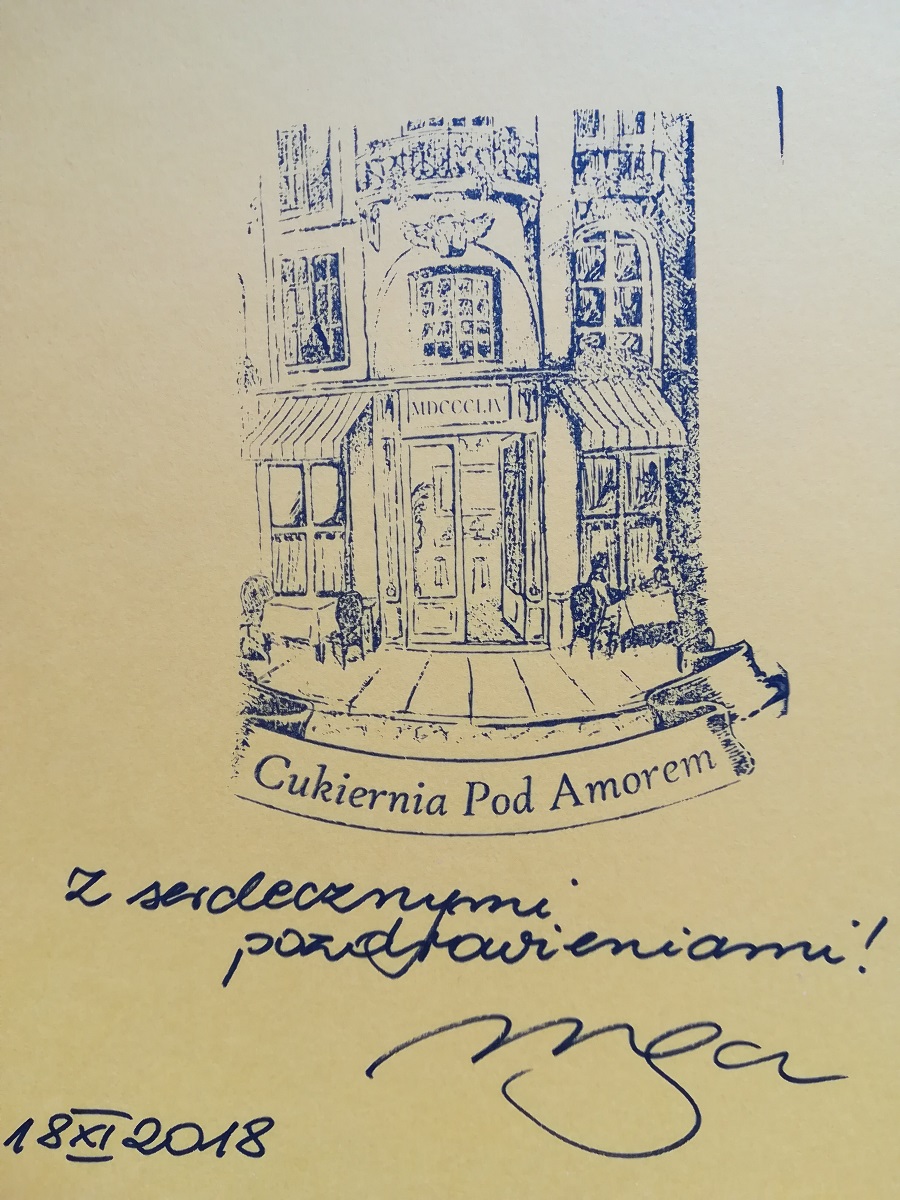 MDCCCLIV
Cukiernia Pod Amorem
Z serdecznymi
pozdrowieniami!
18 XI 2018